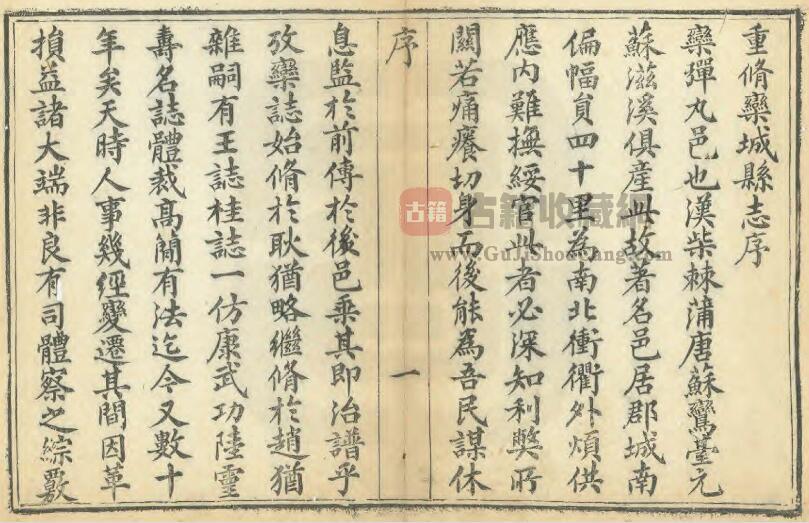 重脩欒城縣志序
欒彈丸邑也漢柴棘蒲唐蘇鸞臺元
蘇滋溪俱産此故著名邑居郡城南
偏幅員四十里為南北衝衢外煩供
應内難撫綏官此者必深知利獘所
關若痛癢切身而後能為吾民謀休
序
一
息監於前傳於後邑乗其即治譜乎
攷欒誌始脩於耿猶略繼脩於趙猶
雜嗣有王誌桂誌一仿康武功陸靈
壽名誌體裁髙簡有法迄今又數十
年矣天時人事幾經變遷其間因革
損益諸大端非良有司體察之綜覈
古籍
古籍收藏網
www.GuJiShouCang.com